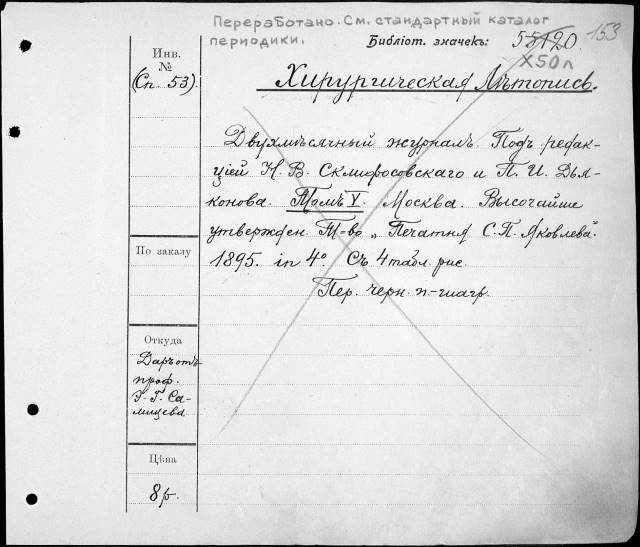 Переработано. См. стандартный каталог
периодики.
Библіот. значекъ: 55120
153
X50л
Инв.
№
(Сп. 53).
Хирургическая Лѣтопись.
Двухмѣсячный журналъ. Подъ редак-
ціей Н. В. Склифосовскаго и П. И. Дья-
конова. Томъ V. Москва. Высочайше
утвержден. Т-во „Печатня С. П. Яковлева".
1895. in 4°. Съ 4 табл. рис.
Пер. черн. п-шагр.
По заказу
Откуда
Даръ отъ
проф.
Са-
Цѣна
8 р.